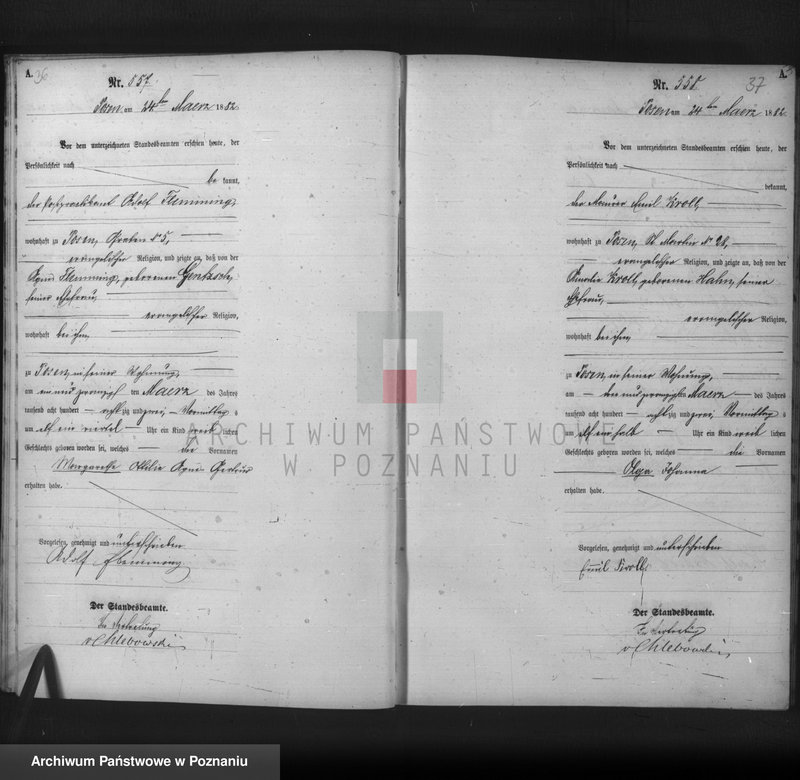 A. 36
Nr. 557.
Posen am 24ten Maerz 1882
Vor dem unterzeichneten Standesbeamten erschien heute, der
Persönlichkeit nach
be kannt,
der Adolf Flemming,
wohnhaft zu Posen, Graben № 5,
evangelischer Religion, und zeigte an, daß von der
Flemming, geborenen
seiner Ehefrau,
evangelischer Religion,
wohnhaft bei ihm,
zu Posen, in seiner Wohnung,
am ein und zwanzigsten ten Maerz des Jahres
tausend acht hundert achtzig und zwei, Vormittags
um elf ein viertel Uhr ein Kind weib lichen
Geschlechts geboren worden sei, welches die Vornamen
Margarethe Ottilie
erhalten habe.
Vorgelesen, genehmigt und unterschrieben
Adolf Flemming
Der Standesbeamte.
In Vertretung
v Chlebowski
A.
Nr. 558. 37
Posen am 24ten Maerz 1882.
Vor dem unterzeichneten Standesbeamten erschien heute, der
Persönlichkeit nach
bekannt,
der Maurer Emil Kroll,
wohnhaft zu Posen, St Martin № 28,
evangelischer Religion, und zeigte an, daß von der
Amalie Kroll, geborenen Hahn, seiner
Ehefrau,
evangelischer Religion,
wohnhaft bei ihm,
zu Posen, in seiner Wohnung,
am drei und zwanzigsten Maerz des Jahres
tausend acht hundert achtzig und zwei, Vormittags
um elf ein halb Uhr ein Kind weib lichen
Geschlechts geboren worden sei, welches die Vornamen
Olga Johanna
erhalten habe.
Vorgelesen, genehmigt und unterschrieben
Emil Kroll
Der Standesbeamte.
In Vertretung
v Chlebowski
ARCHIWUM PAŃSTWOWE
W POZNANIU
Archiwum Państwowe w Poznaniu